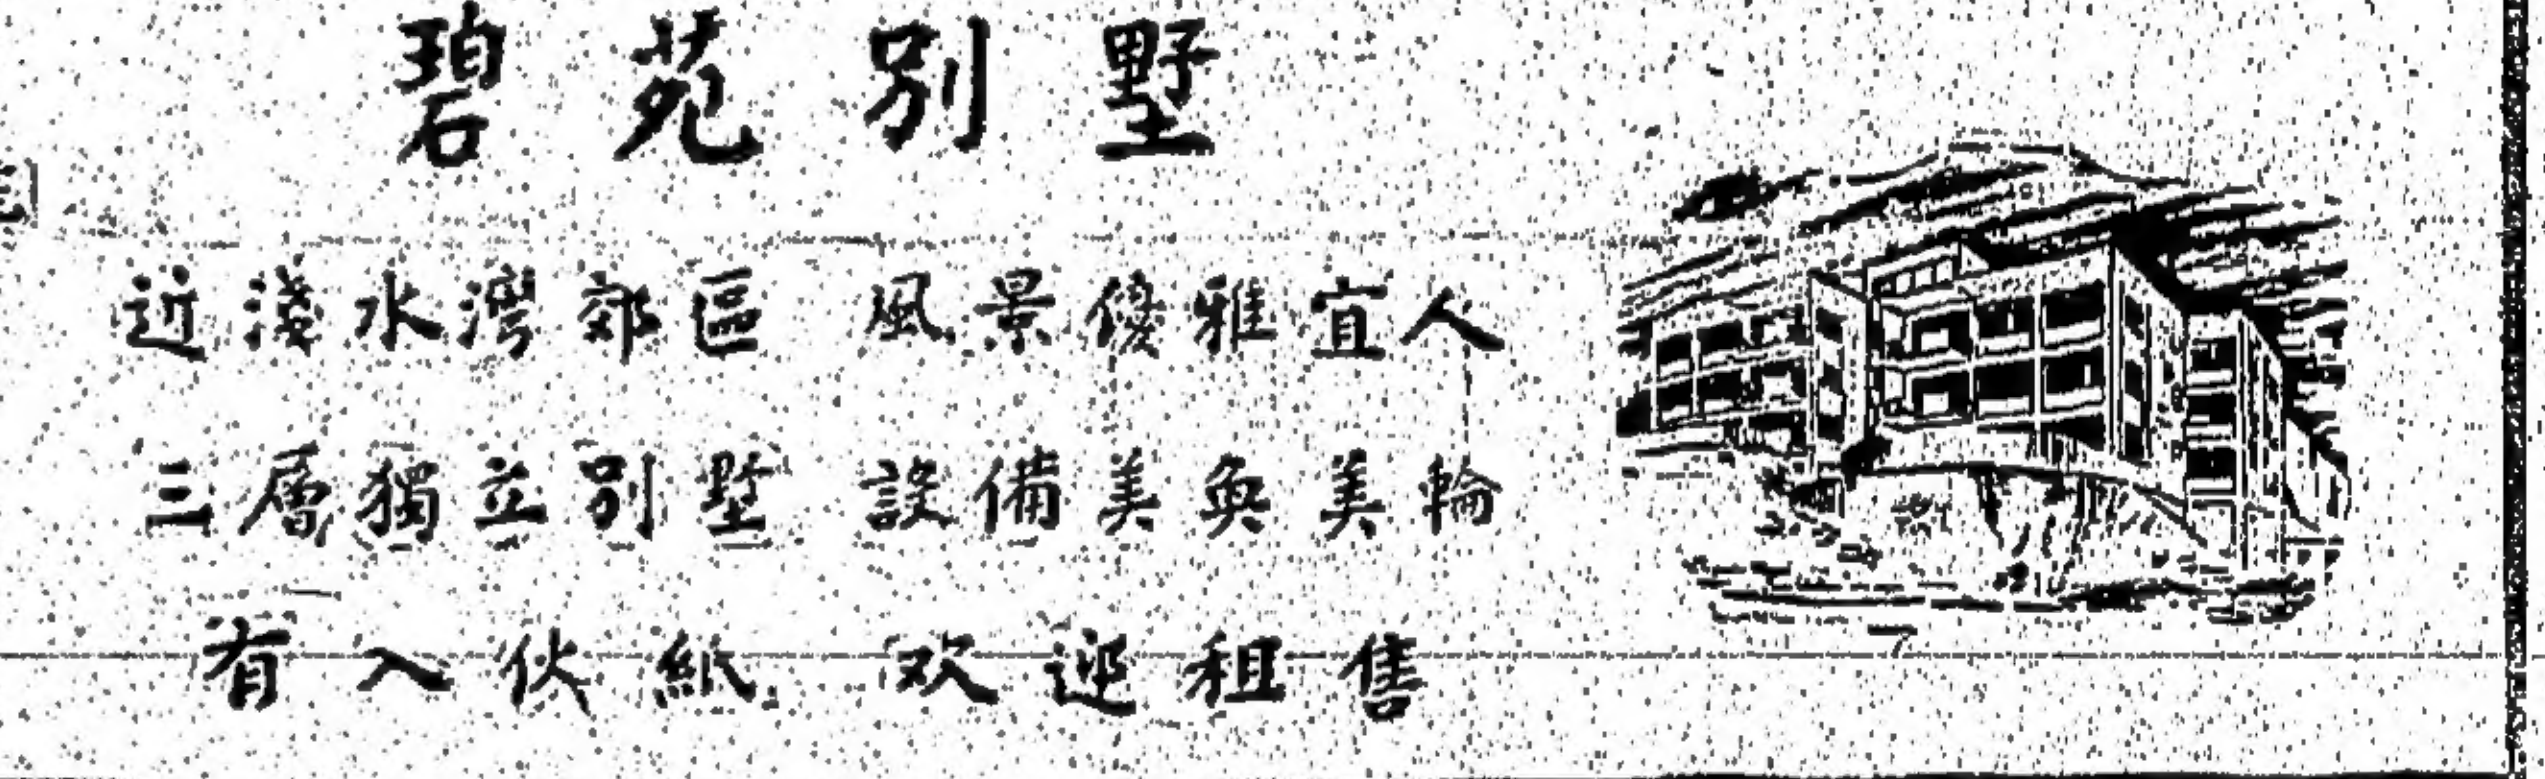 碧苑別墅
近淺水灣郊區 風景優雅宜人
三層獨立別墅 設備美奐美輪
有入伙紙 欢迎租售